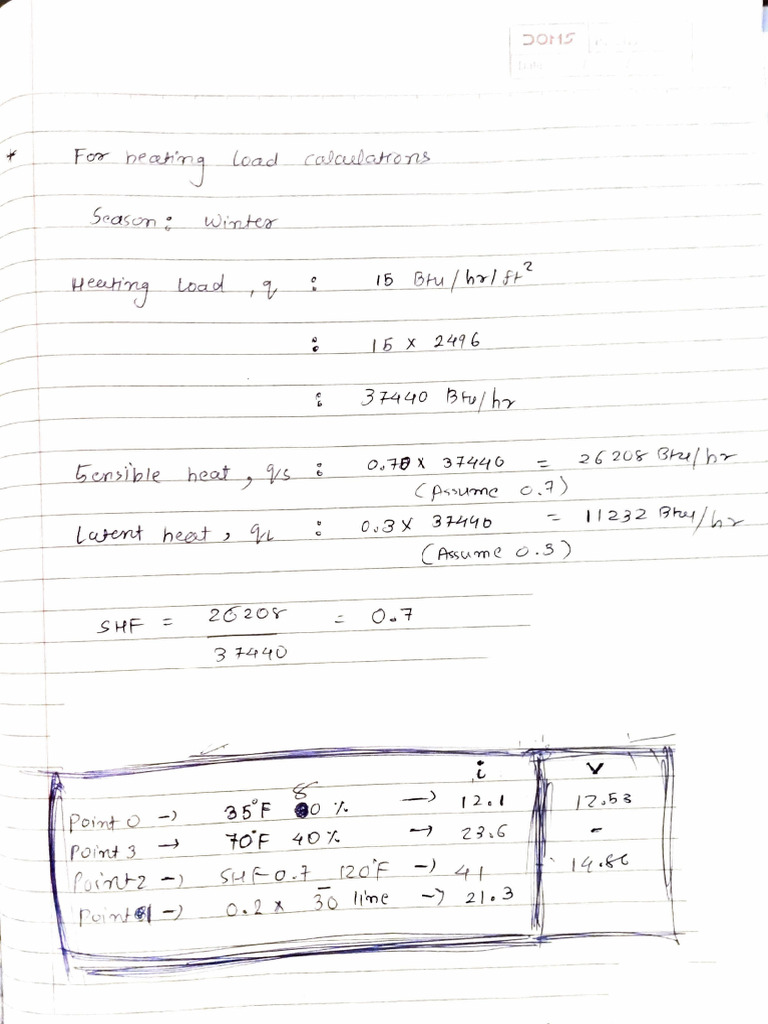 DOMS
* For heating load calculations
Season: Winter
Heating Load, q : 15 Btu/hr/ft²
: 15 × 2496
: 37440 Btu/hr
Sensible heat, qs : 0.70 × 37440 = 26208 Btu/hr
(Assume 0.7)
Latent heat, qL : 0.3 × 37440 = 11232 Btu/hr
(Assume 0.3)
SHF = 26208 = 0.7
37440
i v
Point 0 → 35°F 80 % → 12.1 12.53
Point 3 → 70°F 40 % → 23.6 -
Point 2 → SHF 0.7 120°F → 41 14.86
Point 1 → 0.2 × 3̅0 line → 21.3